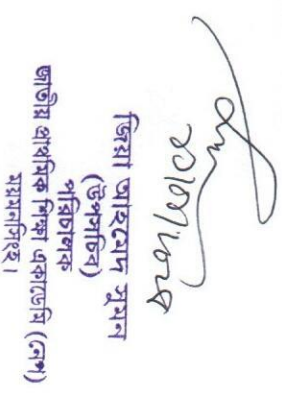 জিয়া আহমেদ সুমন
(উপসচিব)
পরিচালক
জাতীয় প্রাথমিক শিক্ষা একাডেমি (নেপ)
ময়মনসিংহ।